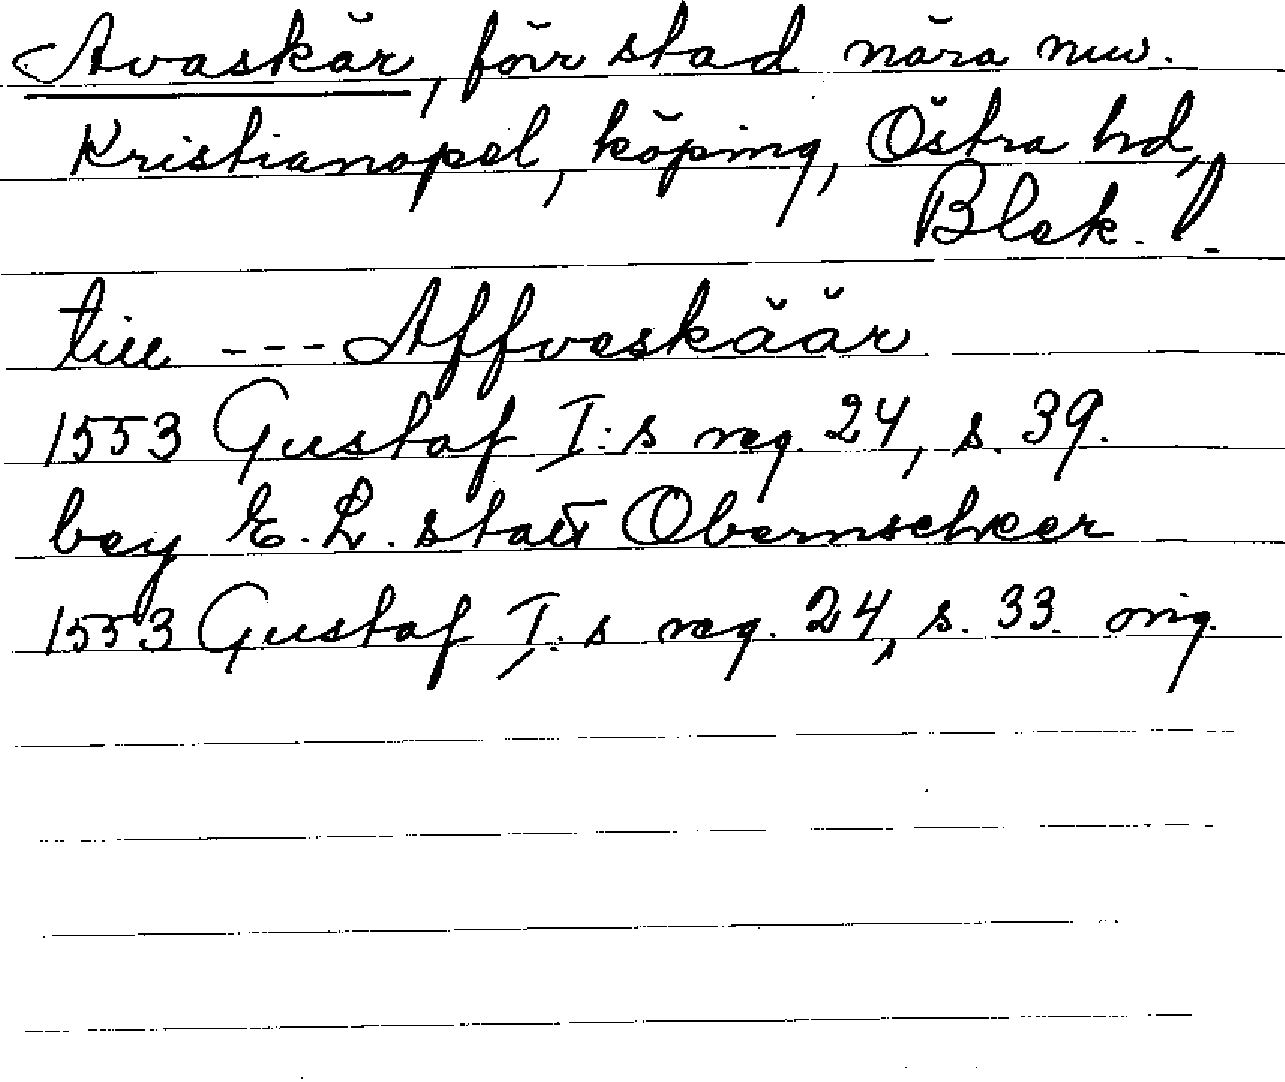 Avaskär, förr stad nära nuv.
Kristianopel, köping, Östra hd,
Blek. l.
till --- Affveskäär
1553 Gustaf I:s reg. 24, s. 39.
bey E. L. statt Obernscheer
1553 Gustaf I:s reg. 24, s. 33. orig.